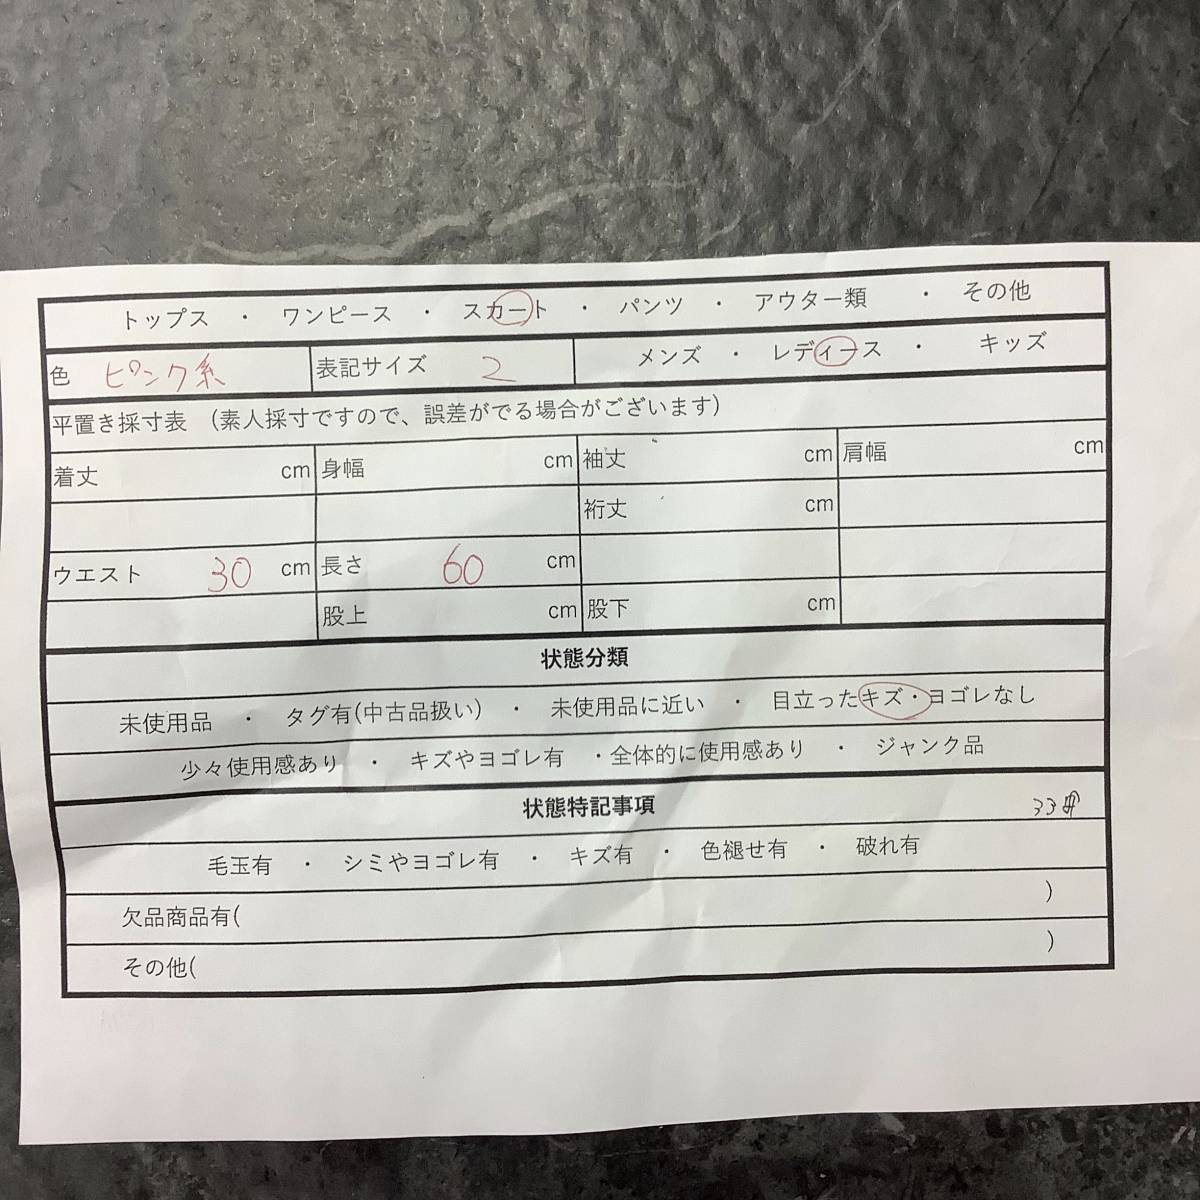 トップス ・ ワンピース ・ スカート ・ パンツ ・ アウター類 ・ その他
色 ピンク系 表記サイズ 2 メンズ ・ レディース ・ キッズ
平置き採寸表 (素人採寸ですので、誤差がでる場合がございます)
着丈 cm 身幅 cm 袖丈 cm 肩幅 cm
裄丈 cm
ウエスト 30 cm 長さ 60 cm
股上 cm 股下 cm
状態分類
未使用品 ・ タグ有(中古品扱い) ・ 未使用品に近い ・ 目立ったキズ・ヨゴレなし
少々使用感あり ・ キズやヨゴレ有 ・全体的に使用感あり ・ ジャンク品
状態特記事項 33
毛玉有 ・ シミやヨゴレ有 ・ キズ有 ・ 色褪せ有 ・ 破れ有
欠品商品有( )
その他( )